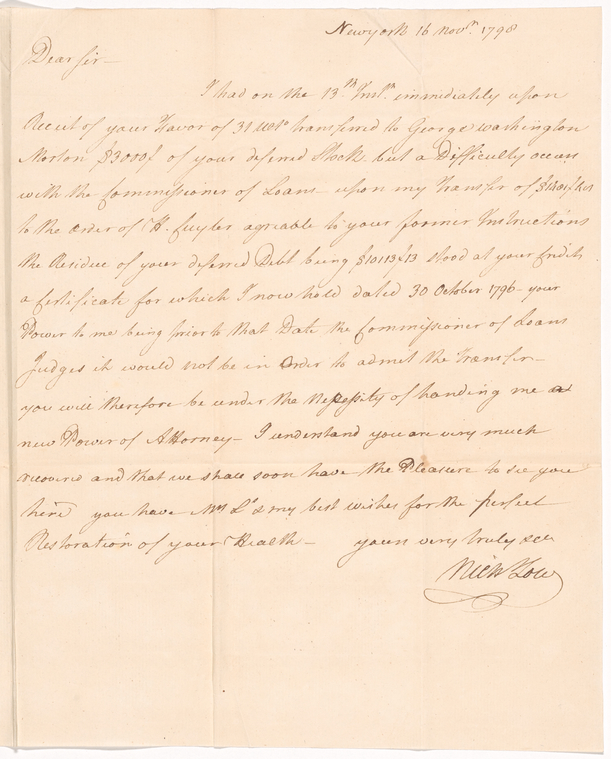 Newyork 16 Novr. 1798
Dear Sir—
I had on the 13th. Instn. immediately upon
Receit of your Favor of 31 Ulto. transferred to George washington
Morton $3000 of your deferred Stock but a Difficulty occurs
with the Commissioner of Loans upon my Transfer of
to the order of H. Cuyler agreable to your former Instructions
the Residue of your deferred Debt being $10113 13 stood at your Credit
a Certificate for which I now hold dated 30 October 1796 your
Power to me being prior to that Date the Commissioner of Loans
Judges it would not be in Order to admit the Transfer—
you will therefore be under the Necessity of handing me a
new Power of Attorney— I understand you are very much
recovered and that we shall soon have the Pleasure to see you
here you have Mrs L's & my best wishes for the perfect
Restoration of your Health— yours very truly &ca
Nichs Low